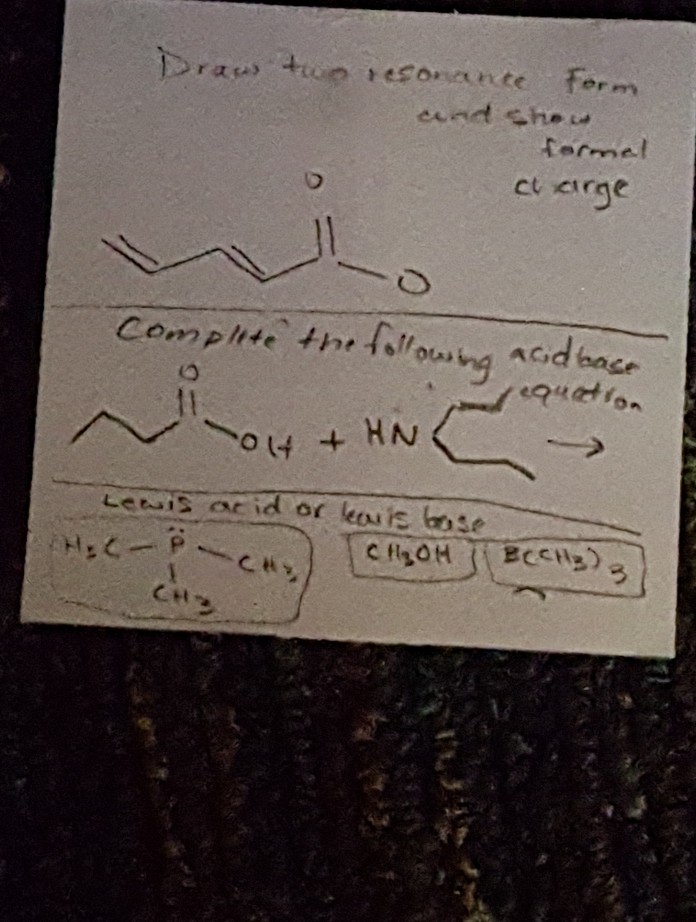 Draw two resonance Form
and show
formal
charge
O
O
Complete the following acid base
equation
O
OH + HN →
Lewis acid or lewis base
H3C - P̈ - CH3 CH3OH B(CH3)3
CH3